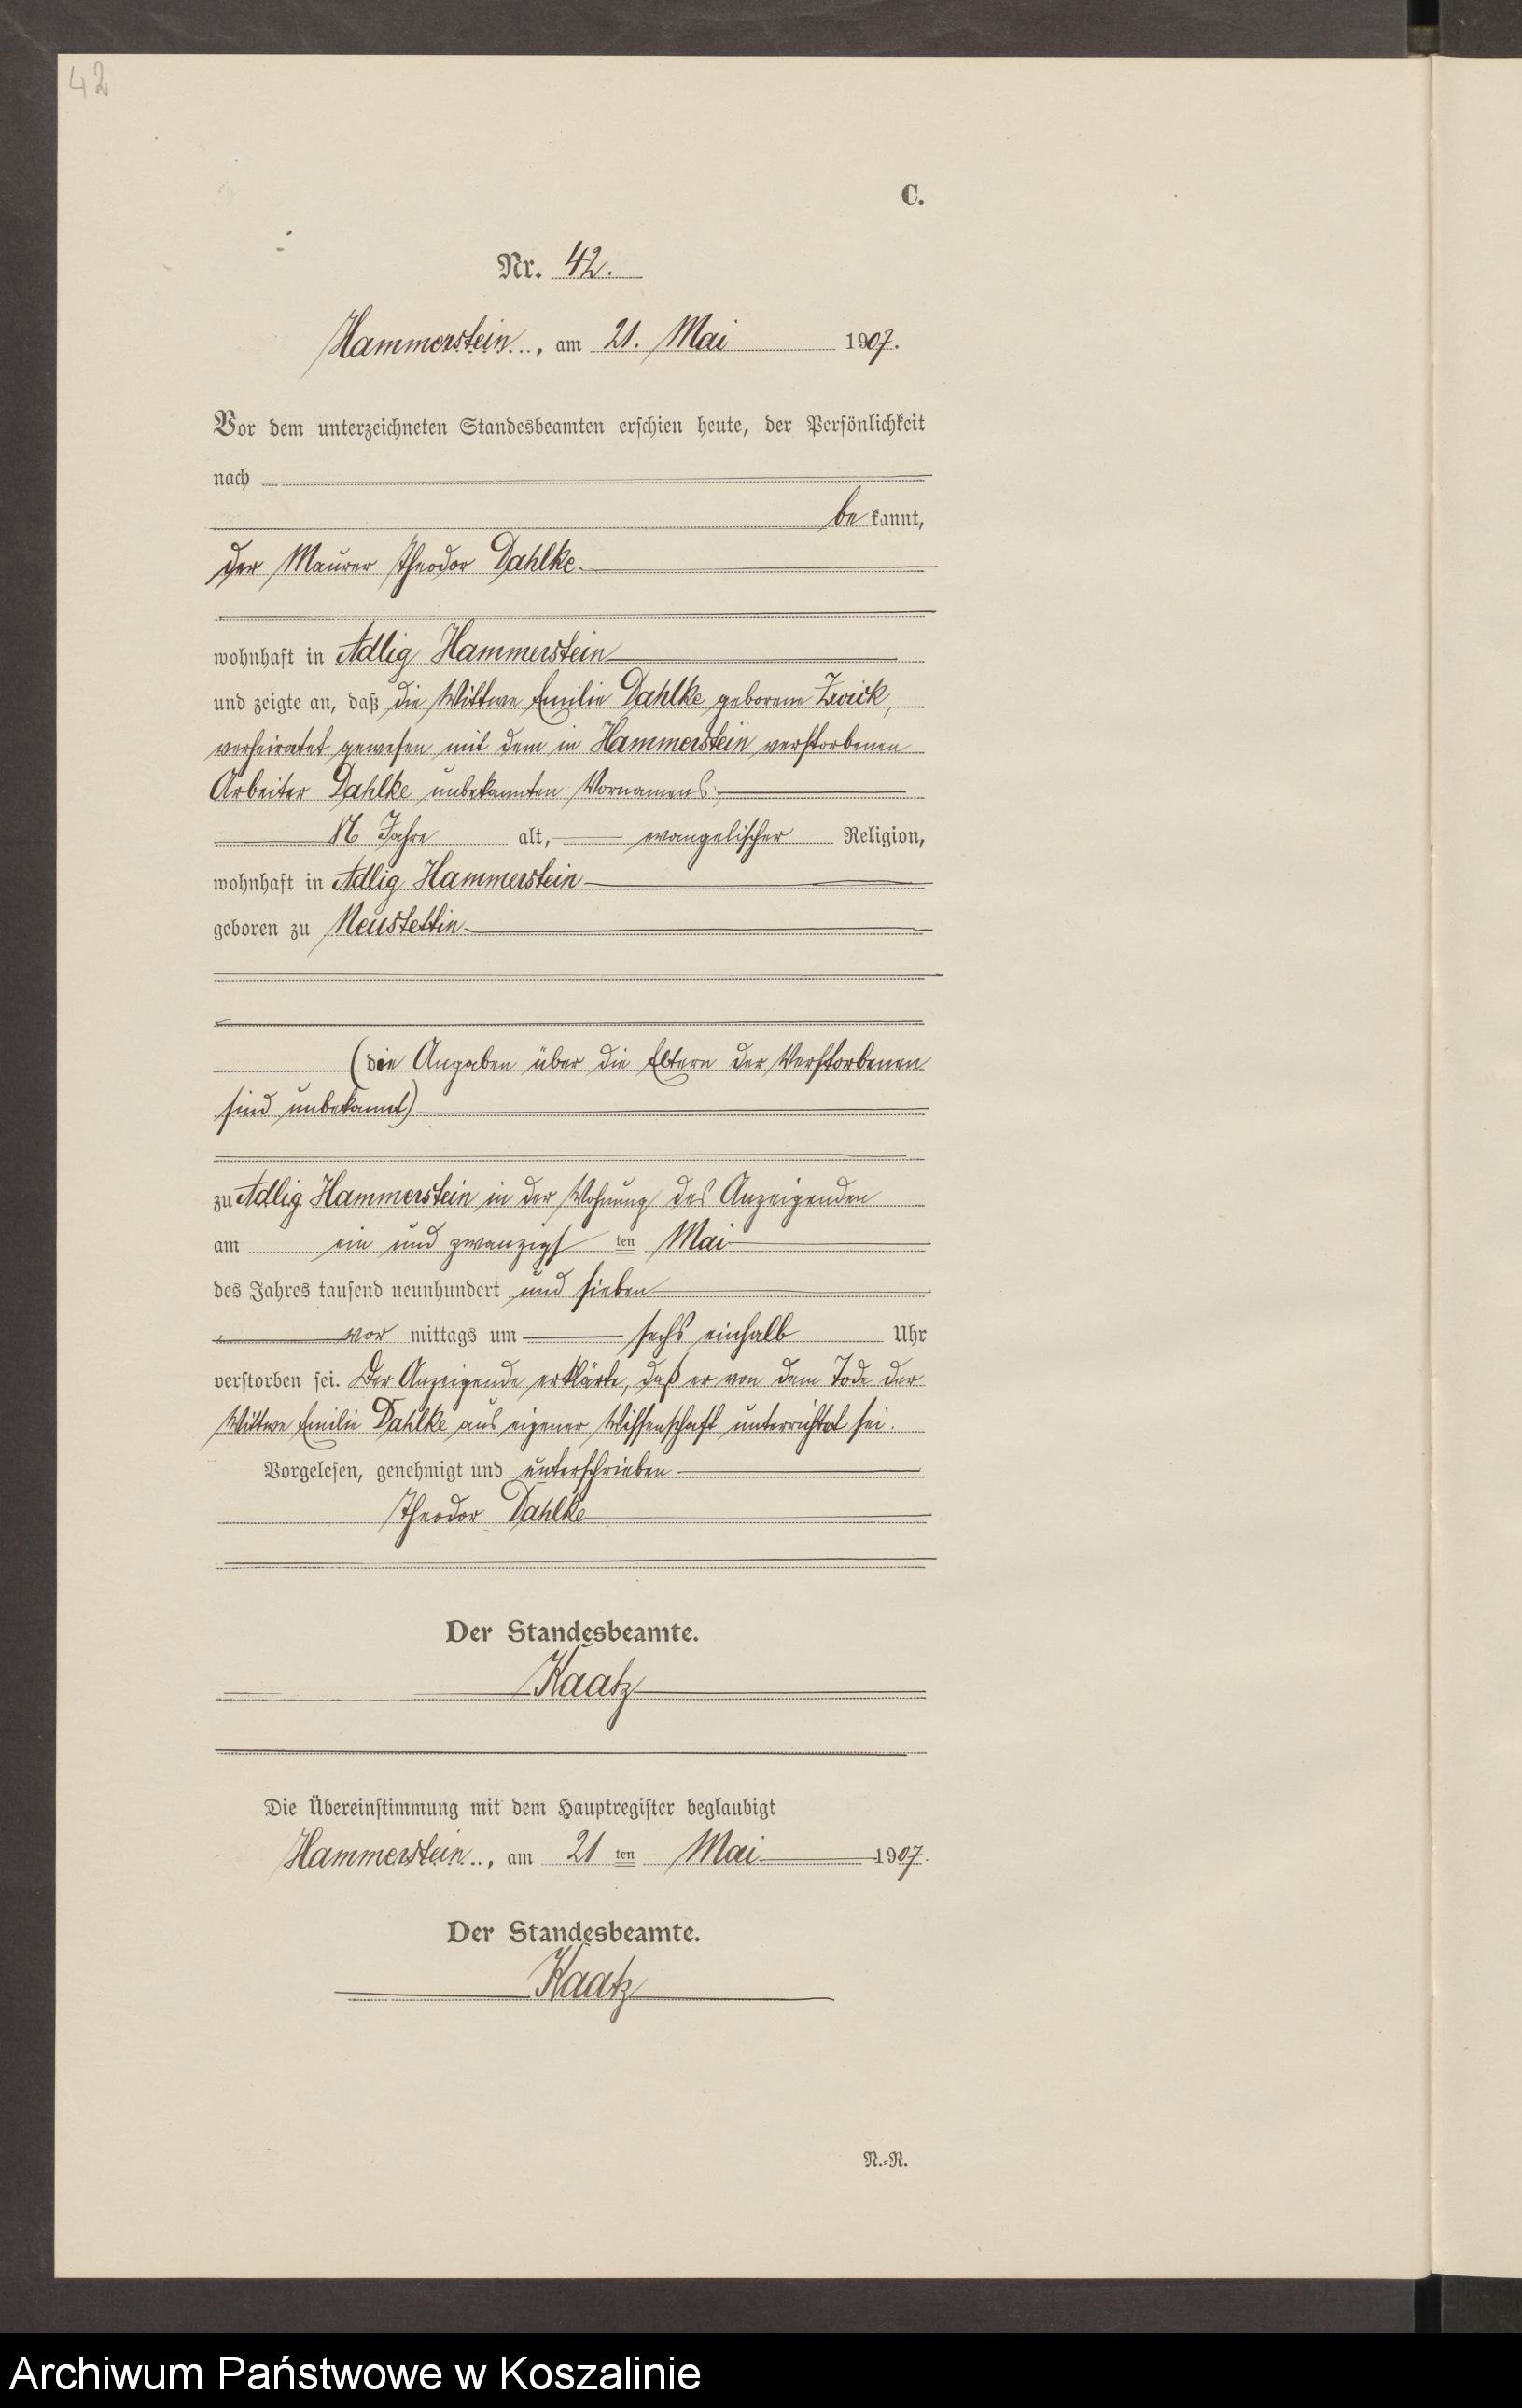 42
C.
Nr. 42.
Hammerstein, am 21. Mai 1907.
Vor dem unterzeichneten Standesbeamten erschien heute, der Persönlichkeit
nach
be kannt,
der Maurer Theodor Dahlke
wohnhaft in Adlig Hammerstein
und zeigte an, daß die Wittwe Emilie Dahlke geborene Zwick,
verheiratet gewesen mit dem in Hammerstein verstorbenen
Arbeiter Dahlke unbekannten Vornamens,
Jahre alt, evangelischer Religion,
wohnhaft in Adlig Hammerstein
geboren zu Neustettin
(die Angaben über die Eltern der Verstorbenen
sind unbekannt)
zu Adlig Hammerstein in der Wohnung des Anzeigenden
am ein und zwanzigsten Mai
des Jahres tausend neunhundert und sieben
vor mittags um sechs einhalb Uhr
verstorben sei. Der Anzeigende erklärte, daß er von dem Tode der
Wittwe Emilie Dahlke aus eigener Wissenschaft unterrichtet sei.
Vorgelesen, genehmigt und unterschrieben
Theodor Dahlke
Der Standesbeamte.
Kaatz
Die Übereinstimmung mit dem Hauptregister beglaubigt
Hammerstein, am 21 ten Mai 1907.
Der Standesbeamte.
Kaatz
N.=R.
Archiwum Państwowe w Koszalinie